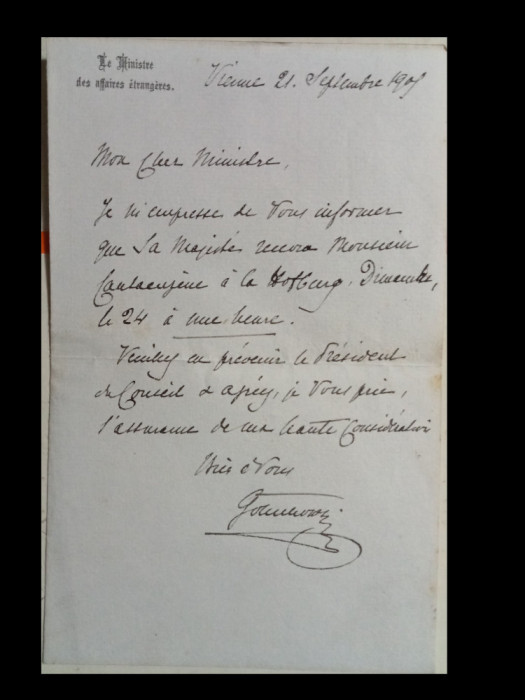 Le Ministre
des affaires étrangères.
Vienne 21. Septembre 1905
Mon cher Ministre,
Je m'empresse de Vous informer
que Sa Majesté recevra Monsieur
Cantacuzène à la Hofburg, Dimanche,
le 24 à une heure.
Veuillez en prévenir le Président
du Conseil & agréez, je Vous prie,
l'assurance de ma haute Considération
Bien à Vous
Goluchowski